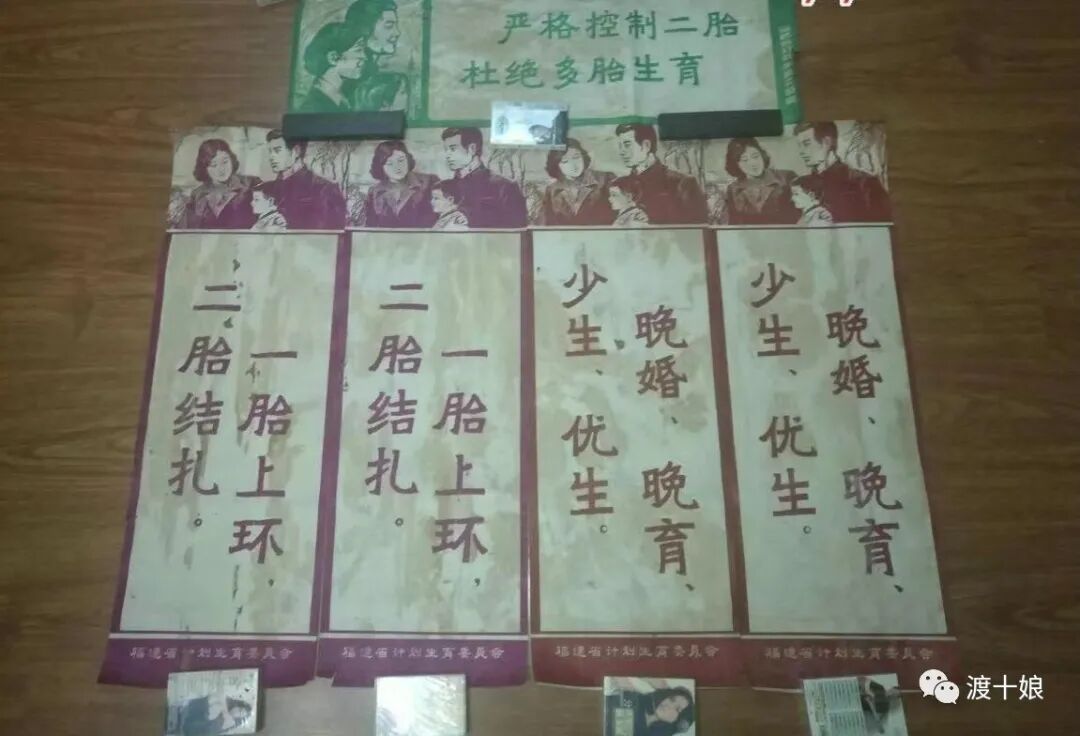 严格控制二胎
杜绝多胎生育
一胎上环，
二胎结扎。
一胎上环，
二胎结扎。
晚婚、晚育、
少生、优生。
晚婚、晚育、
少生、优生。
福建省计划生育委员会
福建省计划生育委员会
福建省计划生育委员会
福建省计划生育委员会
渡十娘